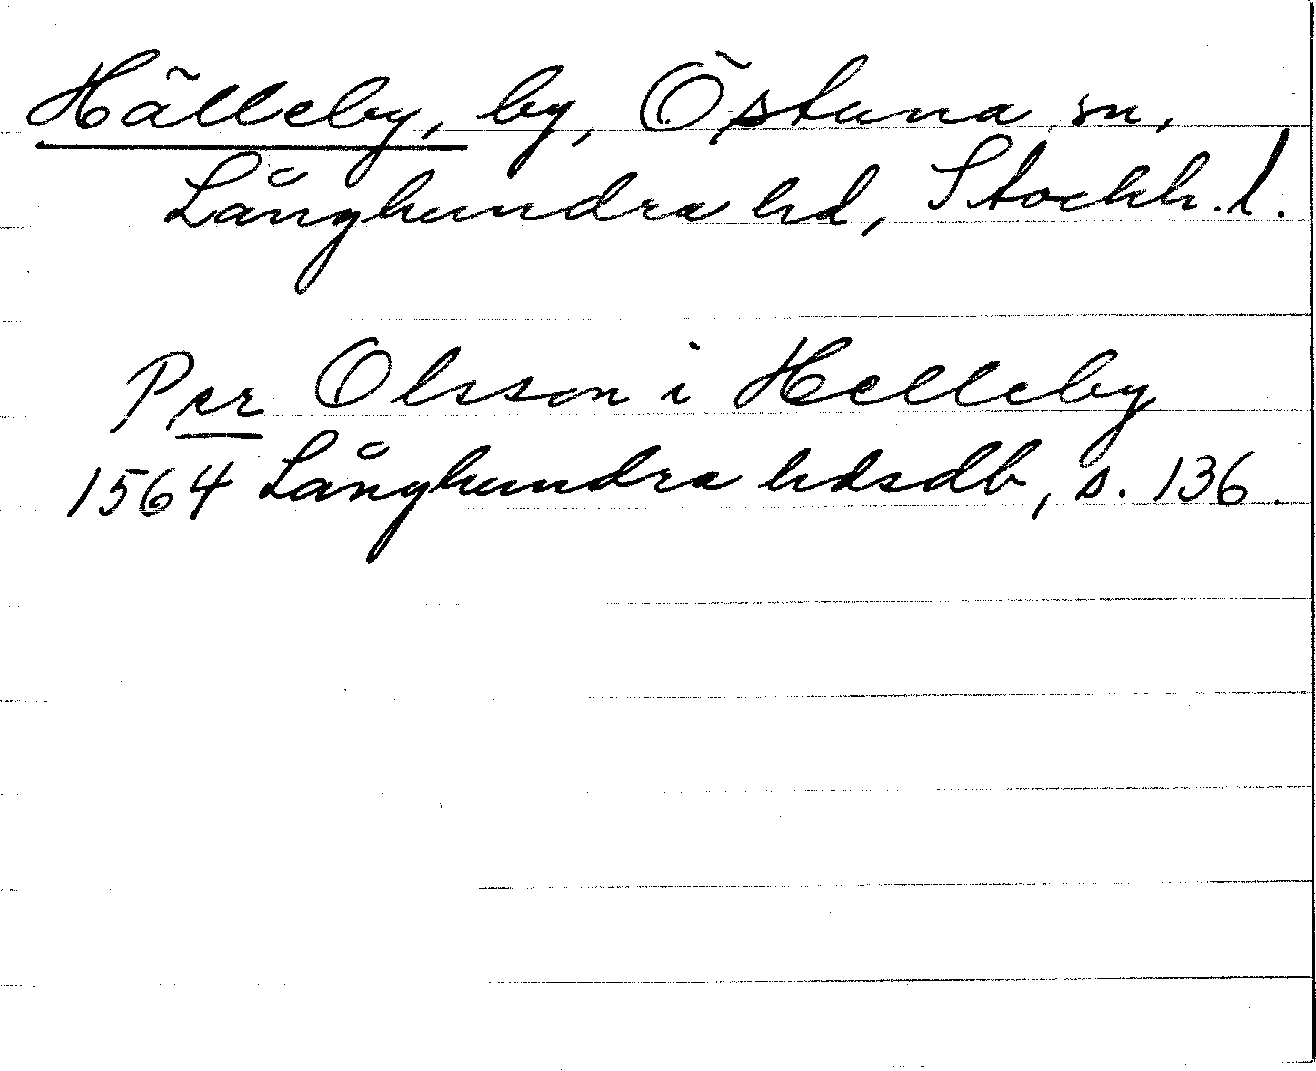 Hälleby, by, Östuna sn,
Långhundra hd, Stockh. l.
Per Olsson i Helleby
1564 Långhundra hdsdb, s. 136.